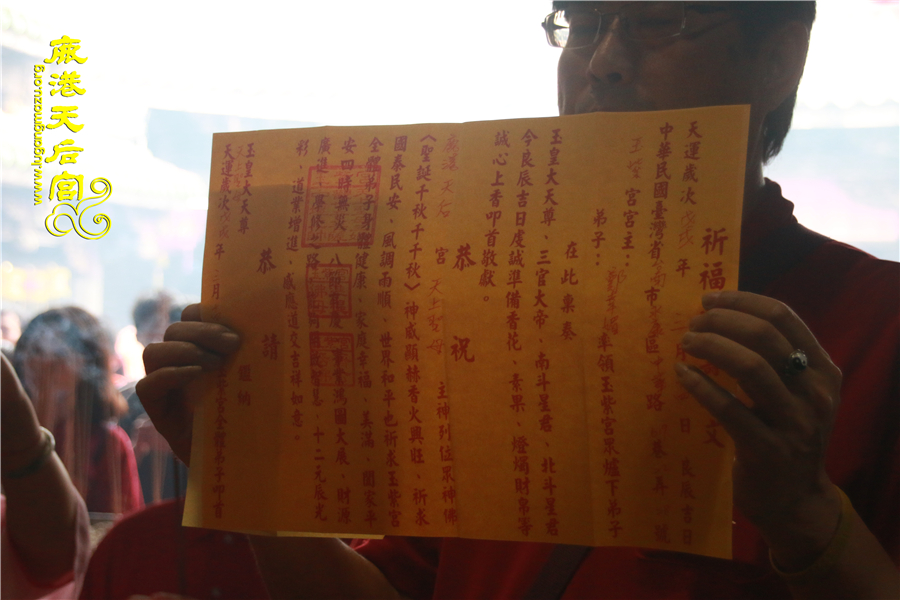 鹿港天后宮
www.lugangmazu.org
祈福文
天運歲次戊戌年三月日良辰吉日
中華民國臺灣省台南市區十路巷弄號
玉紫宮宮主：率領玉紫宮眾爐下弟子
弟子：
在此稟奏
玉皇大天尊、三官大帝、南斗星君、北斗星君
今良辰吉日虔誠準備香花、素果、燈燭財帛等
誠心上香叩首敬獻。
恭祝
鹿港天后宮天上聖母主神列位眾神佛
《聖誕千秋千千秋》神威顯赫香火興旺、祈求
國泰民安、風調雨順、世界和平也祈求玉紫宮
全體弟子身體健康、家庭幸福、美滿、闔家平
安四時興災、八節有慶、事業鴻圖大展、財源
廣進、學修之路開啟智慧、十二元辰光
彩、道業增進、感應道交吉祥如意。
恭請
玉皇大天尊鑒納
天運歲次戊戌年三月宮全體弟子叩首